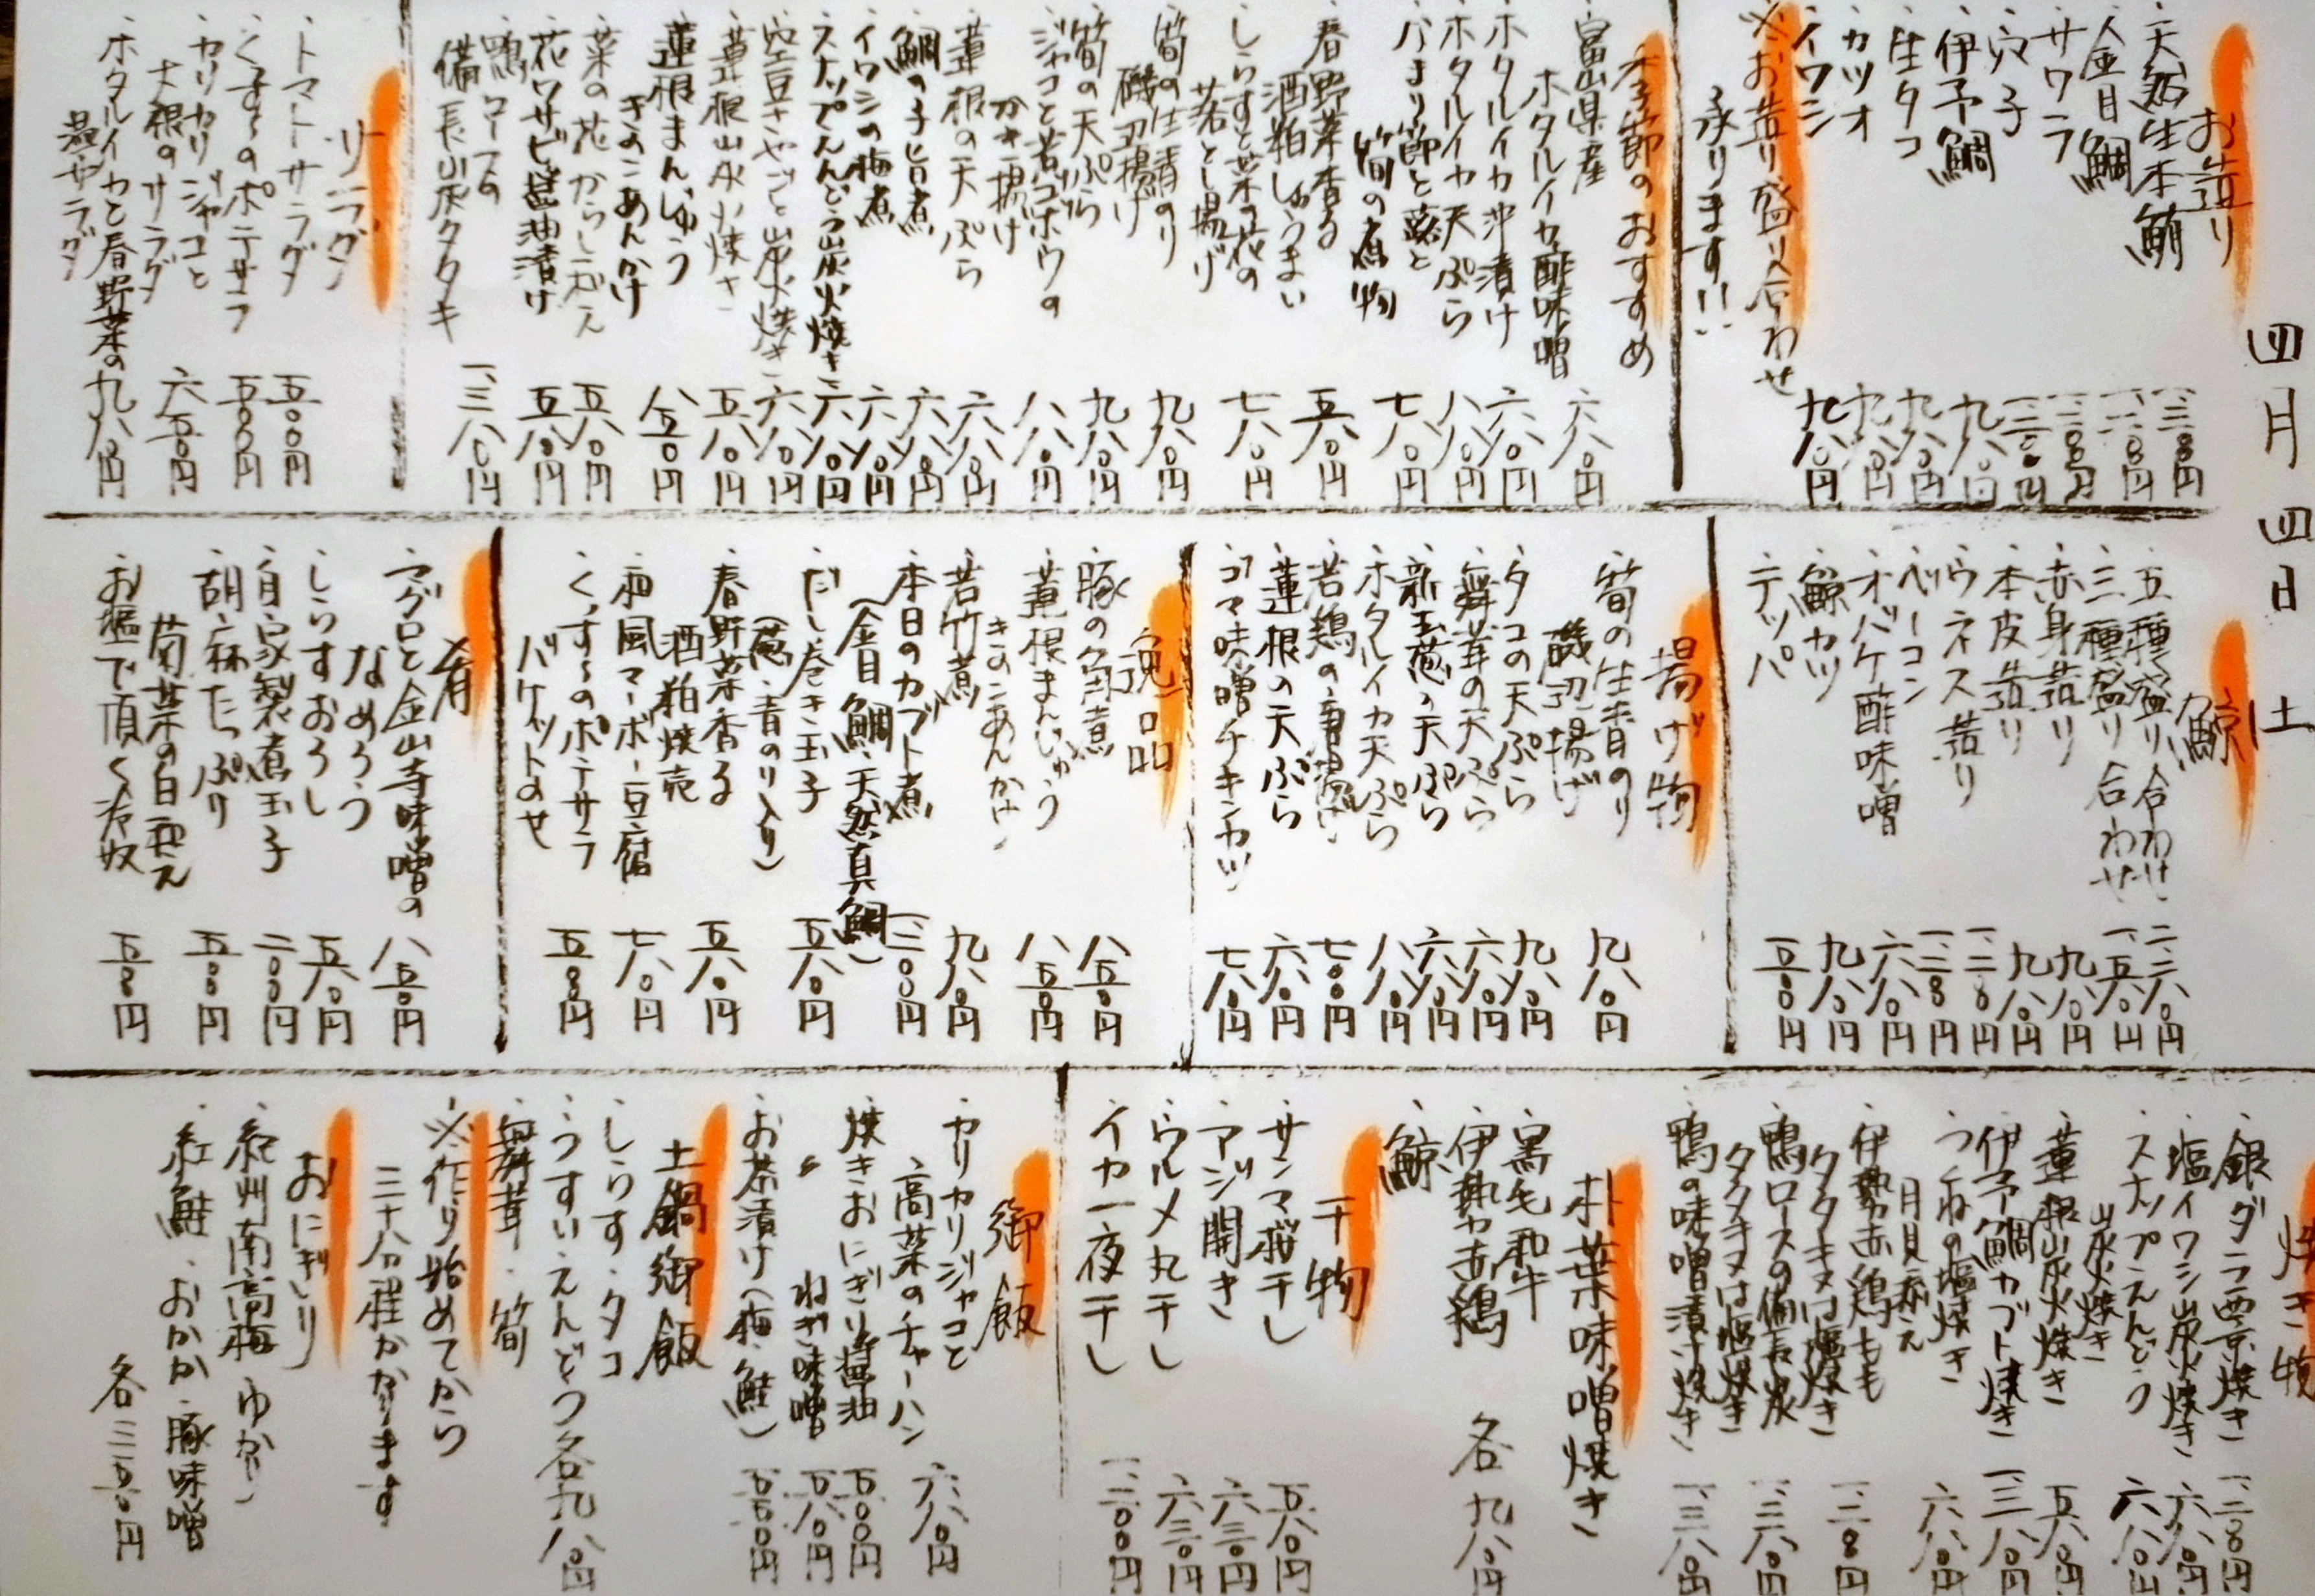 四月四日 土
お造り
・天然生本鮪 一、三八〇円
・金目鯛
・サワラ
・穴子
・伊予鯛 九八〇円
・生タコ 九八〇円
・カツオ 九八〇円
・イワシ 九八〇円
※お造り盛り合わせ
承ります!!
季節のおすすめ
富山県産
ホタルイカ酢味噌 六八〇円
・ホタルイカ沖漬け 六八〇円
・ホタルイカ天ぷら 八八〇円
・なまり節と蕗と
筍の煮物 七八〇円
・春野菜香る
酒粕しゅうまい 五八〇円
・しらすと菜の花の
落とし揚げ 七八〇円
・筍の生青のり
磯辺揚げ 九八〇円
・筍の天ぷら 九八〇円
・ジャコと若ゴボウの
かき揚げ 八八〇円
・蓮根の天ぷら 六八〇円
・鯛の子旨煮 六八〇円
・イワシの梅煮 六八〇円
・スナップえんどう炭火焼き 六八〇円
・空豆さやごと炭火焼き 六八〇円
・蓮根炭火焼き 五八〇円
・蓮根まんじゅう
きのこあんかけ 八五〇円
・菜の花からし和え 五八〇円
・花ワサビ醤油漬け 五八〇円
・鴨ロースの
備長炭タタキ 一、三八〇円
サラダ
・トマトサラダ 五〇〇円
・くずしのポテサラ 五〇〇円
・カリカリジャコと
大根のサラダ 六五〇円
・ホタルイカと春野菜の
温サラダ 九八〇円
鯨
・五種盛り合わせ 二、二八〇円
・三種盛り合わせ 一、五八〇円
・赤身造り 九八〇円
・本皮造り 九八〇円
・ウネス造り
・ベーコン
・オバケ酢味噌 六八〇円
・鯨カツ 九八〇円
・テッパ
揚げ物
・筍の生青のり
磯辺揚げ 九八〇円
・タコの天ぷら 九八〇円
・舞茸の天ぷら 六八〇円
・新玉葱の天ぷら 六八〇円
・ホタルイカ天ぷら 八八〇円
・若鶏の唐揚げ 七〇〇円
・蓮根の天ぷら 六八〇円
・ゴマ味噌チキンカツ 七八〇円
逸品
・豚の角煮 八五〇円
・蓮根まんじゅう
きのこあんかけ 八五〇円
・若竹煮 九八〇円
・本日のカブト煮
(金目鯛、天然真鯛)
・だし巻き玉子
(葱・青のり入り) 五八〇円
・春野菜香る
酒粕焼売 五八〇円
・和風マーボー豆腐 七八〇円
・くずしのポテサラ
バケットのせ 五〇〇円
肴
・マグロと金山寺味噌の
なめろう 八五〇円
・しらすおろし 五八〇円
・自家製煮玉子 二〇〇円
・胡麻たっぷり
菊菜の白和え
・お塩で頂く冷奴
焼き物
・銀ダラ西京焼き
・塩イワシ炭火焼き 六八〇円
・スナップえんどう
炭火焼き 六八〇円
・蓮根炭火焼き 五八〇円
・伊予鯛カブト焼き 一、三八〇円
・つくねの塩焼き
月見添え 六八〇円
・伊勢赤鶏もも
タタキ又は塩焼き
・鴨ロースの備長炭
タタキ又は塩焼き 一、三八〇円
・鴨の味噌漬け焼き 一、三八〇円
朴葉味噌焼き
・黒毛和牛
・伊勢赤鶏 各九八〇円
・鯨
干物
・サンマ桜干し 五八〇円
・アジ開き 六三〇円
・ウルメ丸干し 六三〇円
・イカ一夜干し
御飯
・カリカリジャコと
高菜のチャーハン 六八〇円
・焼きおにぎり醤油 五〇〇円
・〃 ねぎ味噌 五八〇円
・お茶漬け(梅・鮭)
土鍋御飯
・しらす・タコ
・うすいえんどう 各九八〇円
・舞茸・筍
※作り始めてから
三十分程かかります
おにぎり
・紀州南高梅・ゆかり
・紅鮭・おかか・豚味噌
各三五〇円